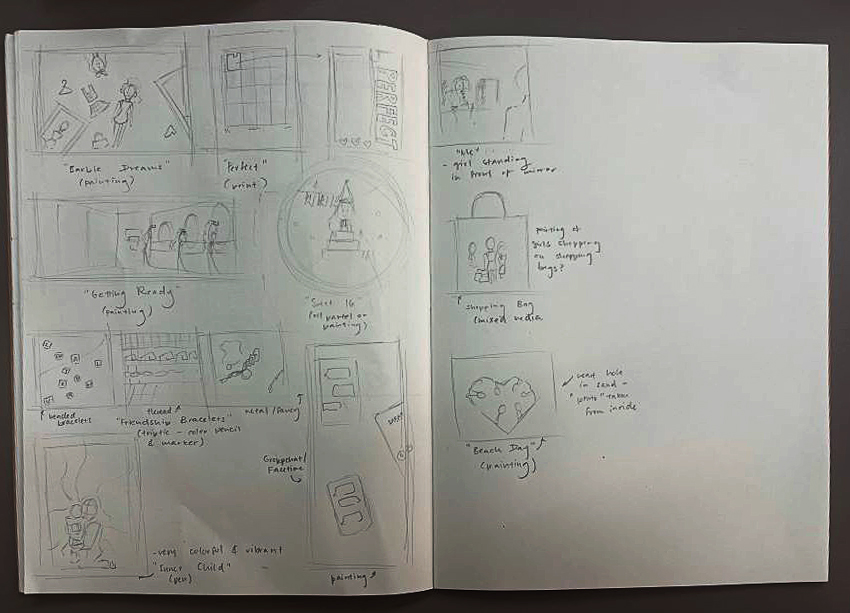 "Barbie Dreams"
(painting)
"Perfect"
(print)
PERFECT
"Getting Ready"
(painting)
"Sweet 16"
(oil pastel or
painting)
beaded
bracelets
thread
metal/fancy
"Friendship Bracelets"
(triptic - color pencil
& marker)
Groupchat/
Facetime
painting
- very colorful & vibrant
"Inner Child"
(pen)
"Me"
- girl standing
in front of mirror
painting of
girls shopping
on shopping
bags?
Shopping Bag
(mixed media
heart hole
in sand -
"photo" taken
from inside
"Beach Day"
(painting)